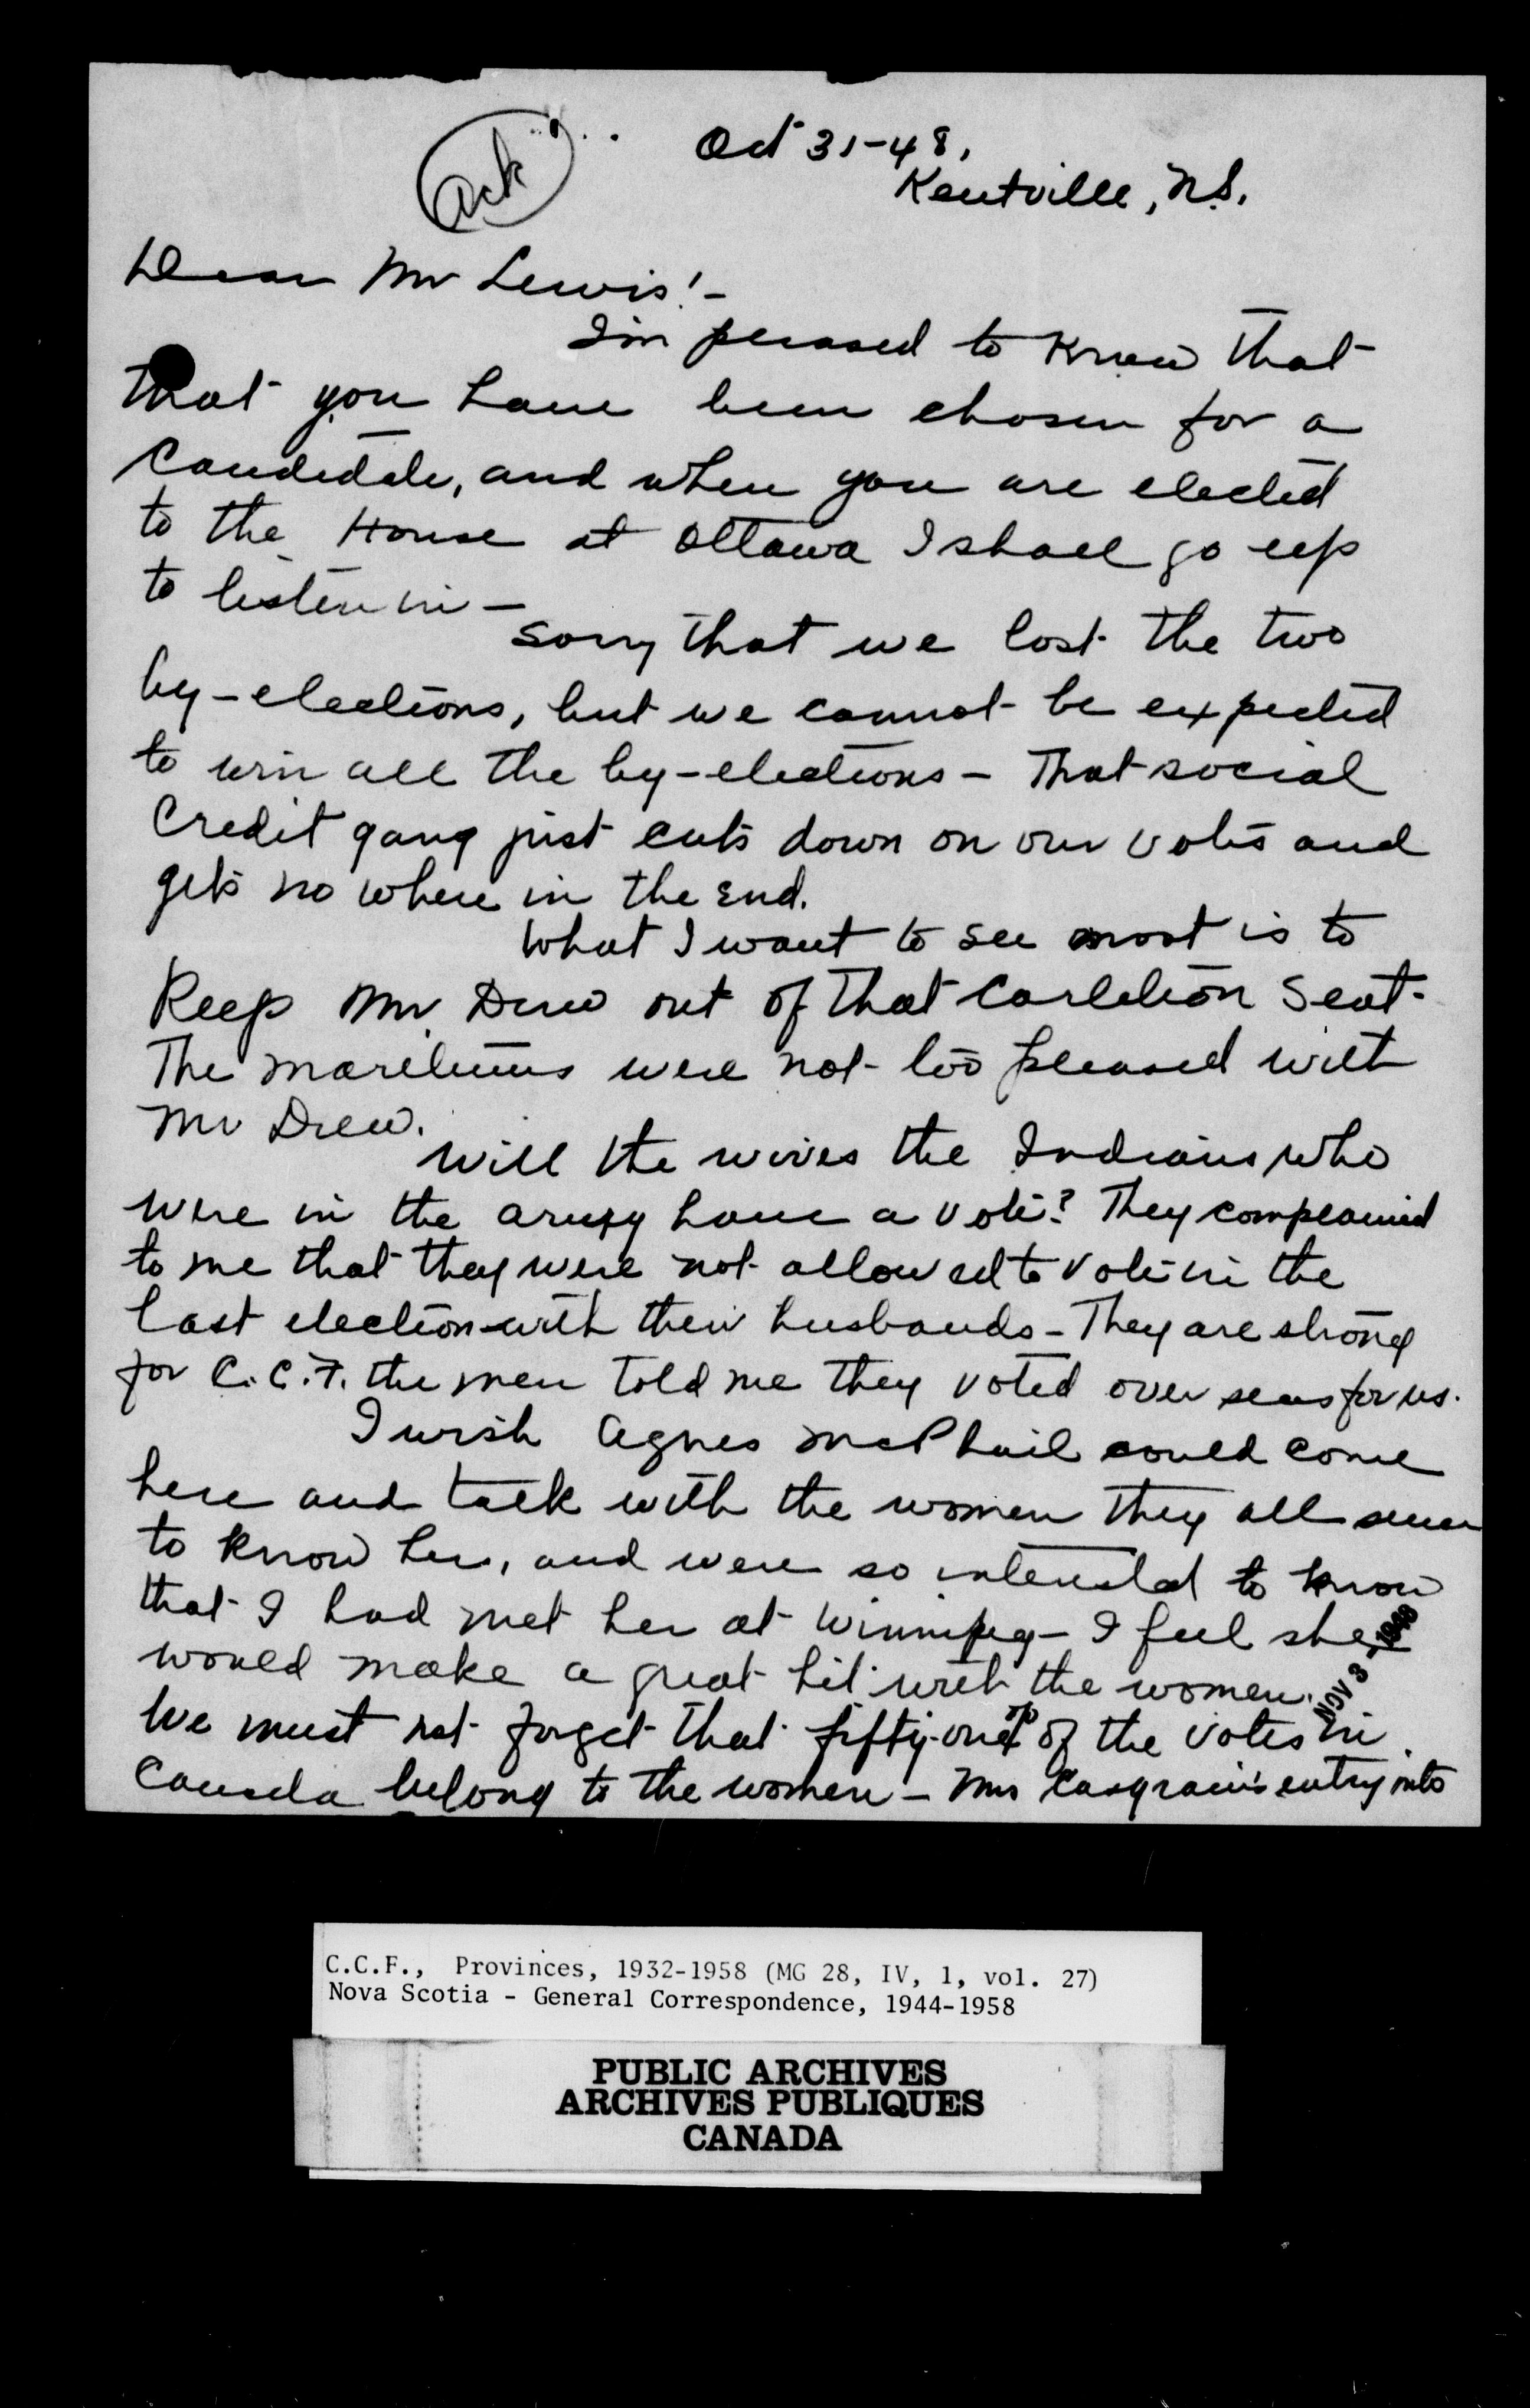 Ack
Oct 31-48,
Kentville, N.S.
Dear Mr Lewis!-
I'm pleased to know that
that you have been chosen for a
candidate, and when you are elected
to the House at Ottawa I shall go up
to listen in -
Sorry that we lost the two
by-elections, but we cannot be expected
to win all the by-elections - That social
Credit gang just cuts down on our votes and
gets no where in the end.
What I want to see most is to
Keep Mr. Drew out of that Carleton Seat.
The maritimes were not too pleased with
Mr Drew.
Will the wives the Indians who
were in the army have a vote? They complained
to me that they were not allowed to vote in the
last election with their husbands - They are strong
for C.C.F. the men told me they voted over seas for us.
I wish Agnes McPhail could come
here and talk with the women they all seem
to know her, and were so interested to know
that I had met her at Winnipeg - I feel she
would make a great hit with the women.
NOV 3 - 1948
We must not forget that fifty-one % of the votes in
Canada belong to the women - Mrs Casgrain's entry into
C.C.F., Provinces, 1932-1958 (MG 28, IV, 1, vol. 27)
Nova Scotia - General Correspondence, 1944-1958
PUBLIC ARCHIVES
ARCHIVES PUBLIQUES
CANADA